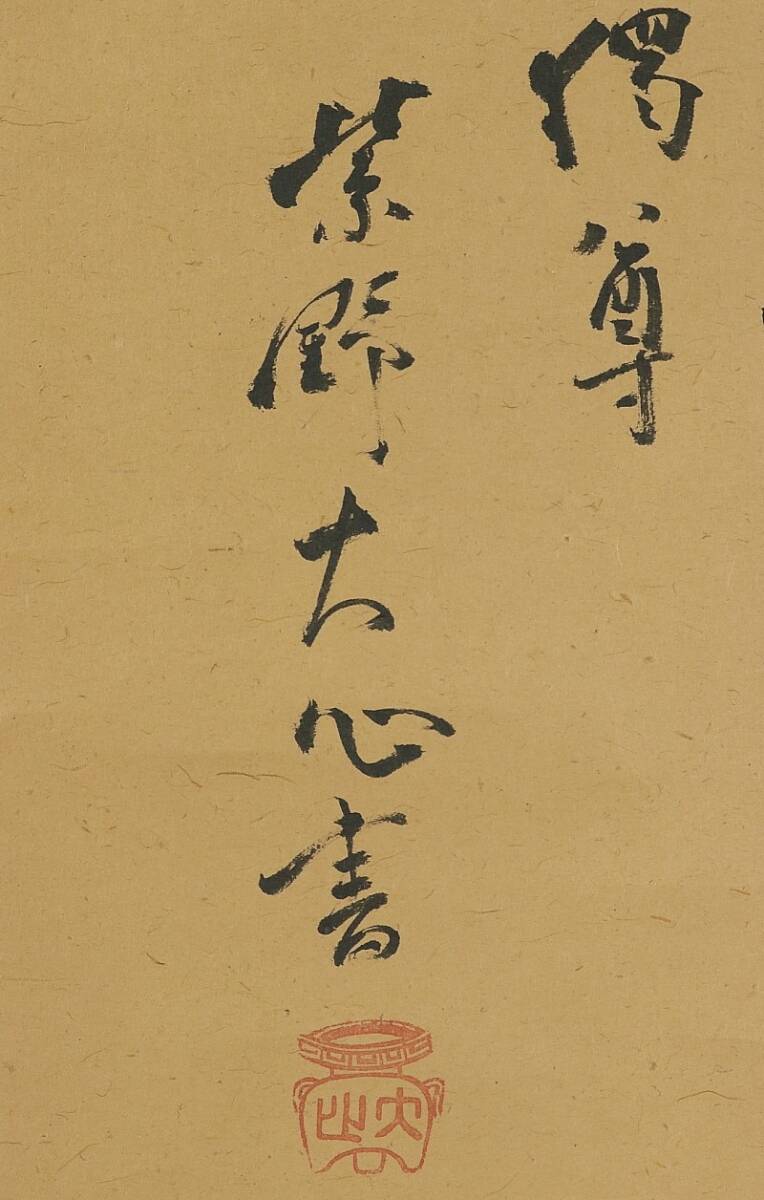 獨尊
紫野大心書
大心